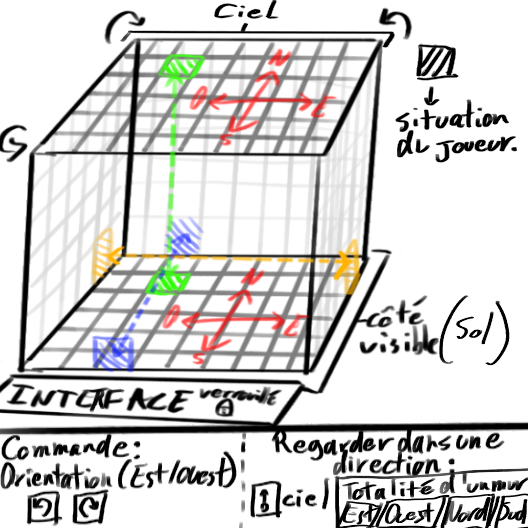 Ciel
N
O E
S
situation
du joueur.
N
O E
S
côté
visible (Sol)
INTERFACE verrouillé
Commande:
Orientation (Est/ouest)
Regarder dans une
direction:
ciel
Totalité d'un mur
Est/Ouest/Nord/Sud